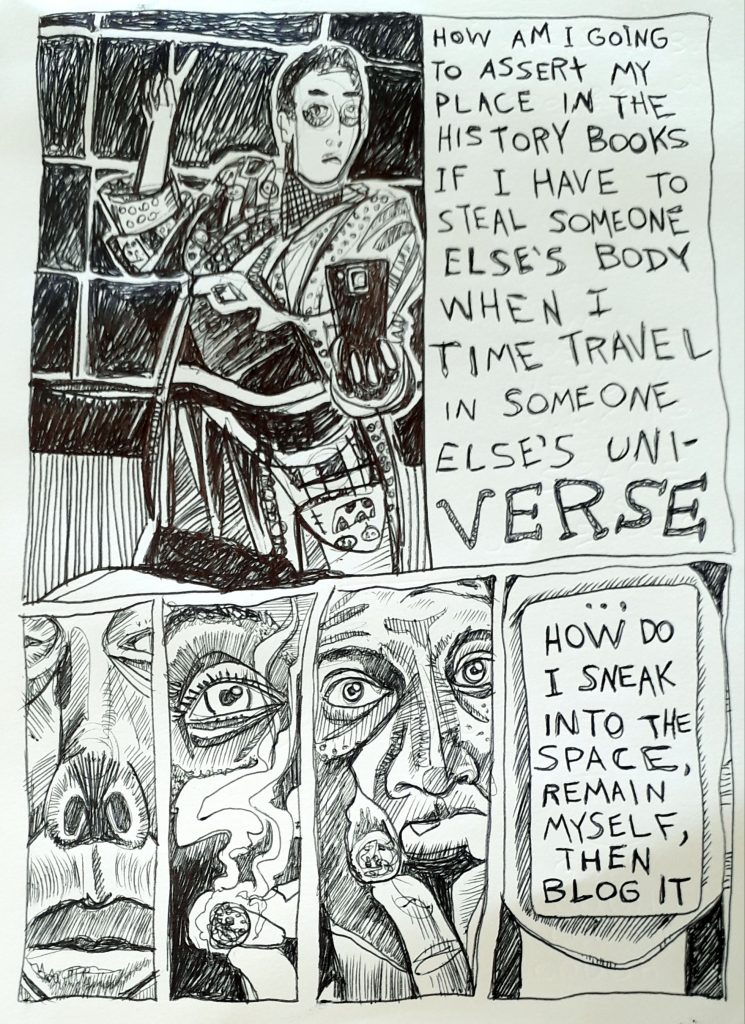 HOW AM I GOING
TO ASSERT MY
PLACE IN THE
HISTORY BOOKS
IF I HAVE TO
STEAL SOMEONE
ELSE'S BODY
WHEN I
TIME TRAVEL
IN SOMEONE
ELSE'S UNI-
VERSE
...
HOW DO
I SNEAK
INTO THE
SPACE,
REMAIN
MYSELF,
THEN
BLOG IT